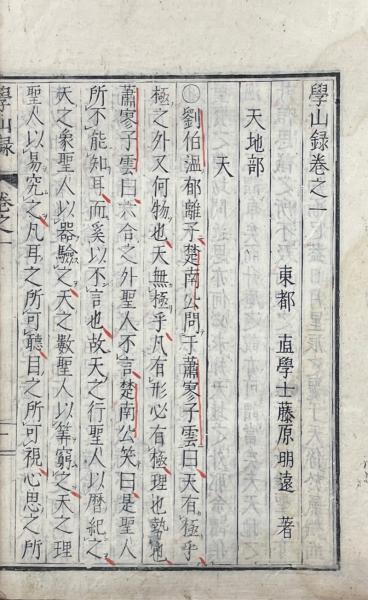 學山錄卷之一
東都 直學士藤原明遠 著
天地部
天
劉伯溫郁離子楚南公問于蕭寥子雲曰天有極乎
極之外又何物也天無極乎凡有形必有極理也勢也
蕭寥子雲曰六合之外聖人不言楚南公笑曰是聖人
所不能知耳而奚以不言也故天之行聖人以曆紀之
天之象聖人以器驗之天之數聖人以筭窮之天之理
聖人以易究之凡耳之所可聽目之所可視心思之所
學山錄 卷之一 一